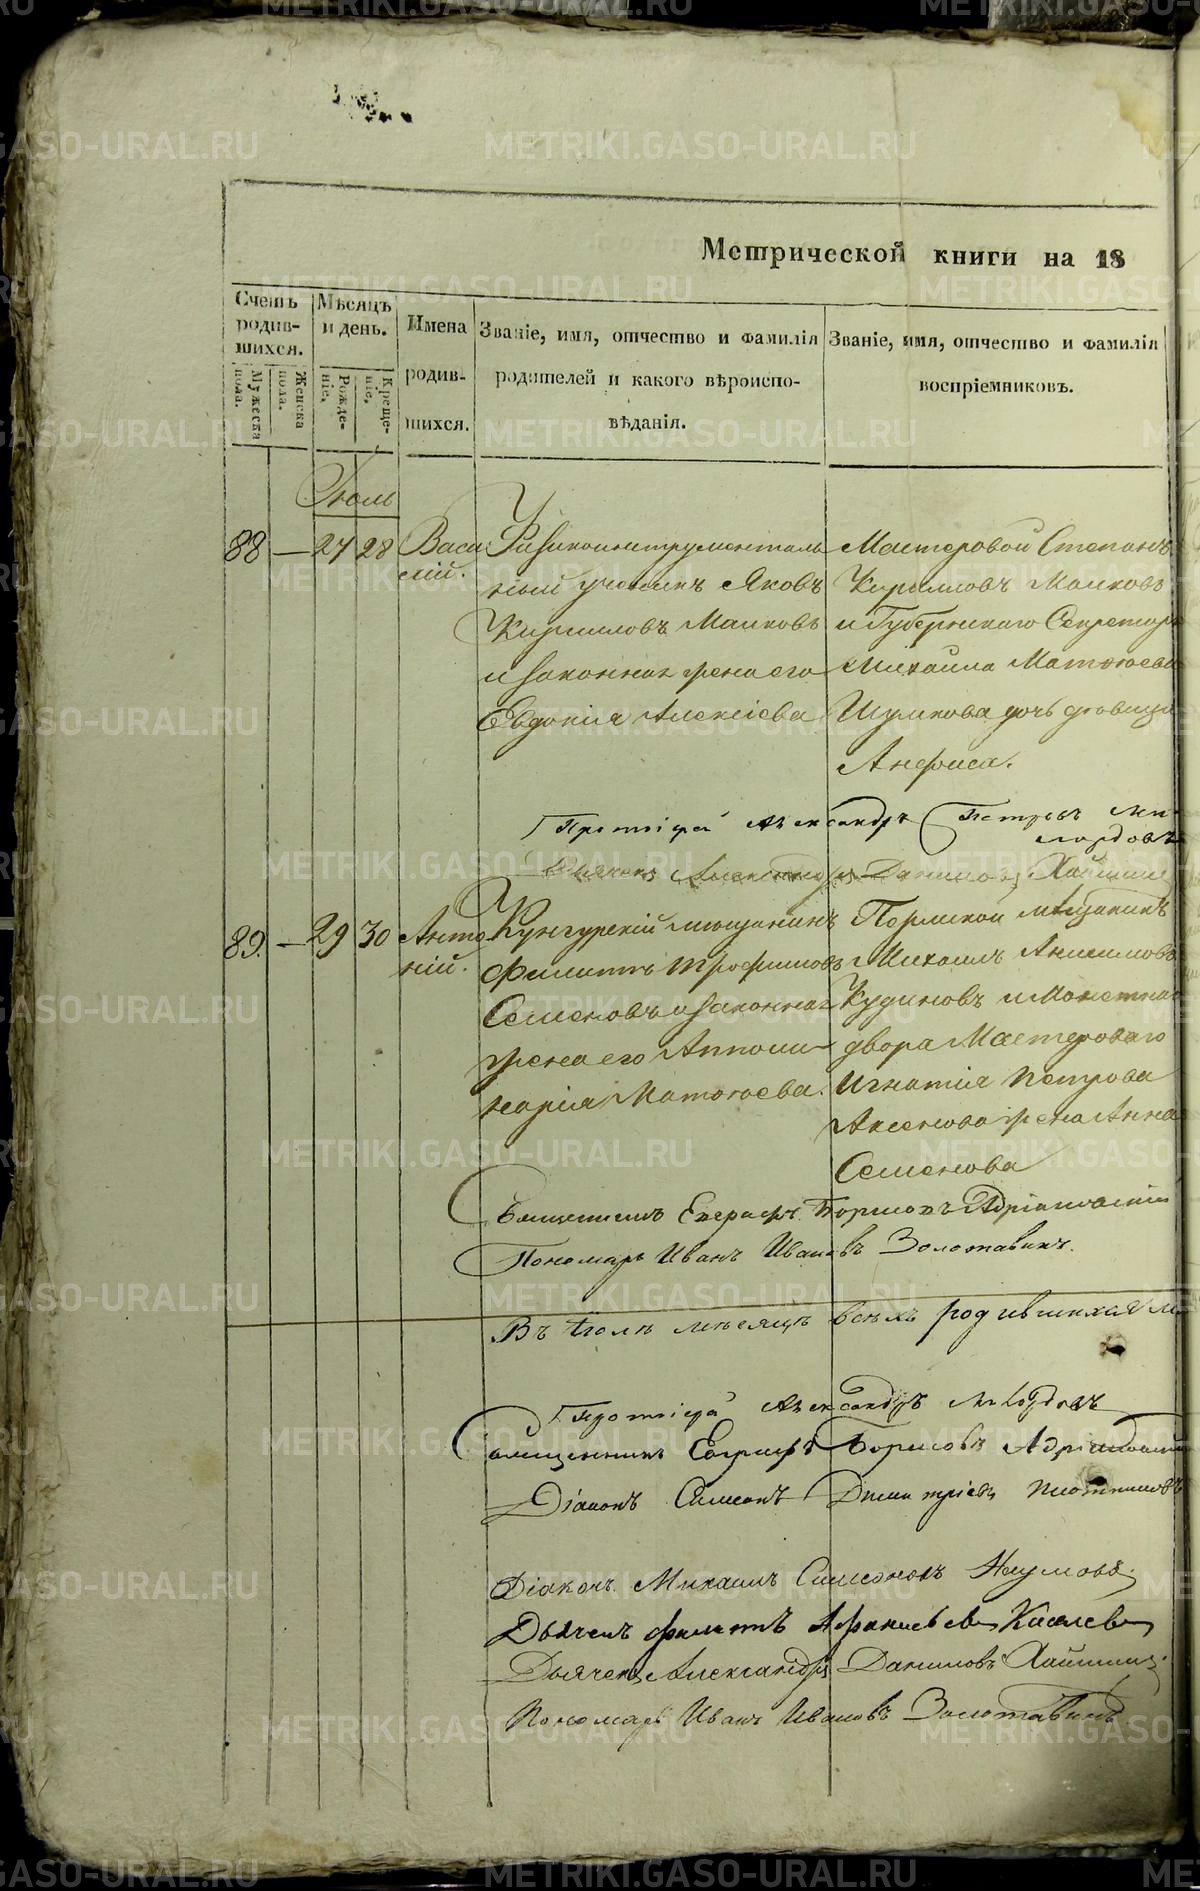 METRIKI.GASO-URAL.RU
Метрической книги на 18
Счетъ родив-шихся.
Мужеска пола.
Женска пола.
Мѣсяцъ и день.
Рожде-ніе.
Креще-ніе.
Имена родив-шихся.
Званіе, имя, отчество и фамилія родителей и какого вѣроиспо-вѣданія.
Званіе, имя, отчество и фамилія воспріемниковъ.
Іюль
88 — 27 28
Васи
лій.
ученикъ Яковъ
Кириловъ Малковъ
и законная жена его
Евдокія Алексіева
Мастеровой Степанъ
Кириловъ Малковъ
и Губернскаго Секретаря
Михаила Матѳѣева
Шумкова дочь девица
Анфиса.
Протоіерей Александръ Петровъ
Дьячекъ Александръ Даниловъ
89. — 29 30
Анто
ній.
Кунгурскій мѣщанинъ
Филиппъ Трофимовъ
Семеновъ и законная
жена его Аполли
нарія Матѳѣева.
Пермской мѣщанинъ
Михаилъ Анисимовъ
Кудиновъ и Монетнаго
двора Мастероваго
Игнатія Петрова
Аксенова жена Анна
Семенова
Священникъ Евграфъ Борисовъ
Пономарь Иванъ Ивановъ Золотавинъ.
Въ Іюлѣ мѣсяцѣ всѣхъ родившихся
Протоіерей Александръ
Священникъ Евграфъ Борисовъ
Діаконъ Симеонъ Димитріевъ Плотниковъ
Діаконъ Михаилъ Симеоновъ Наумовъ.
Дьячекъ Филиппъ Афанасьевъ Киселевъ
Дьячекъ Александръ Даниловъ
Пономарь Иванъ Ивановъ Золотавинъ